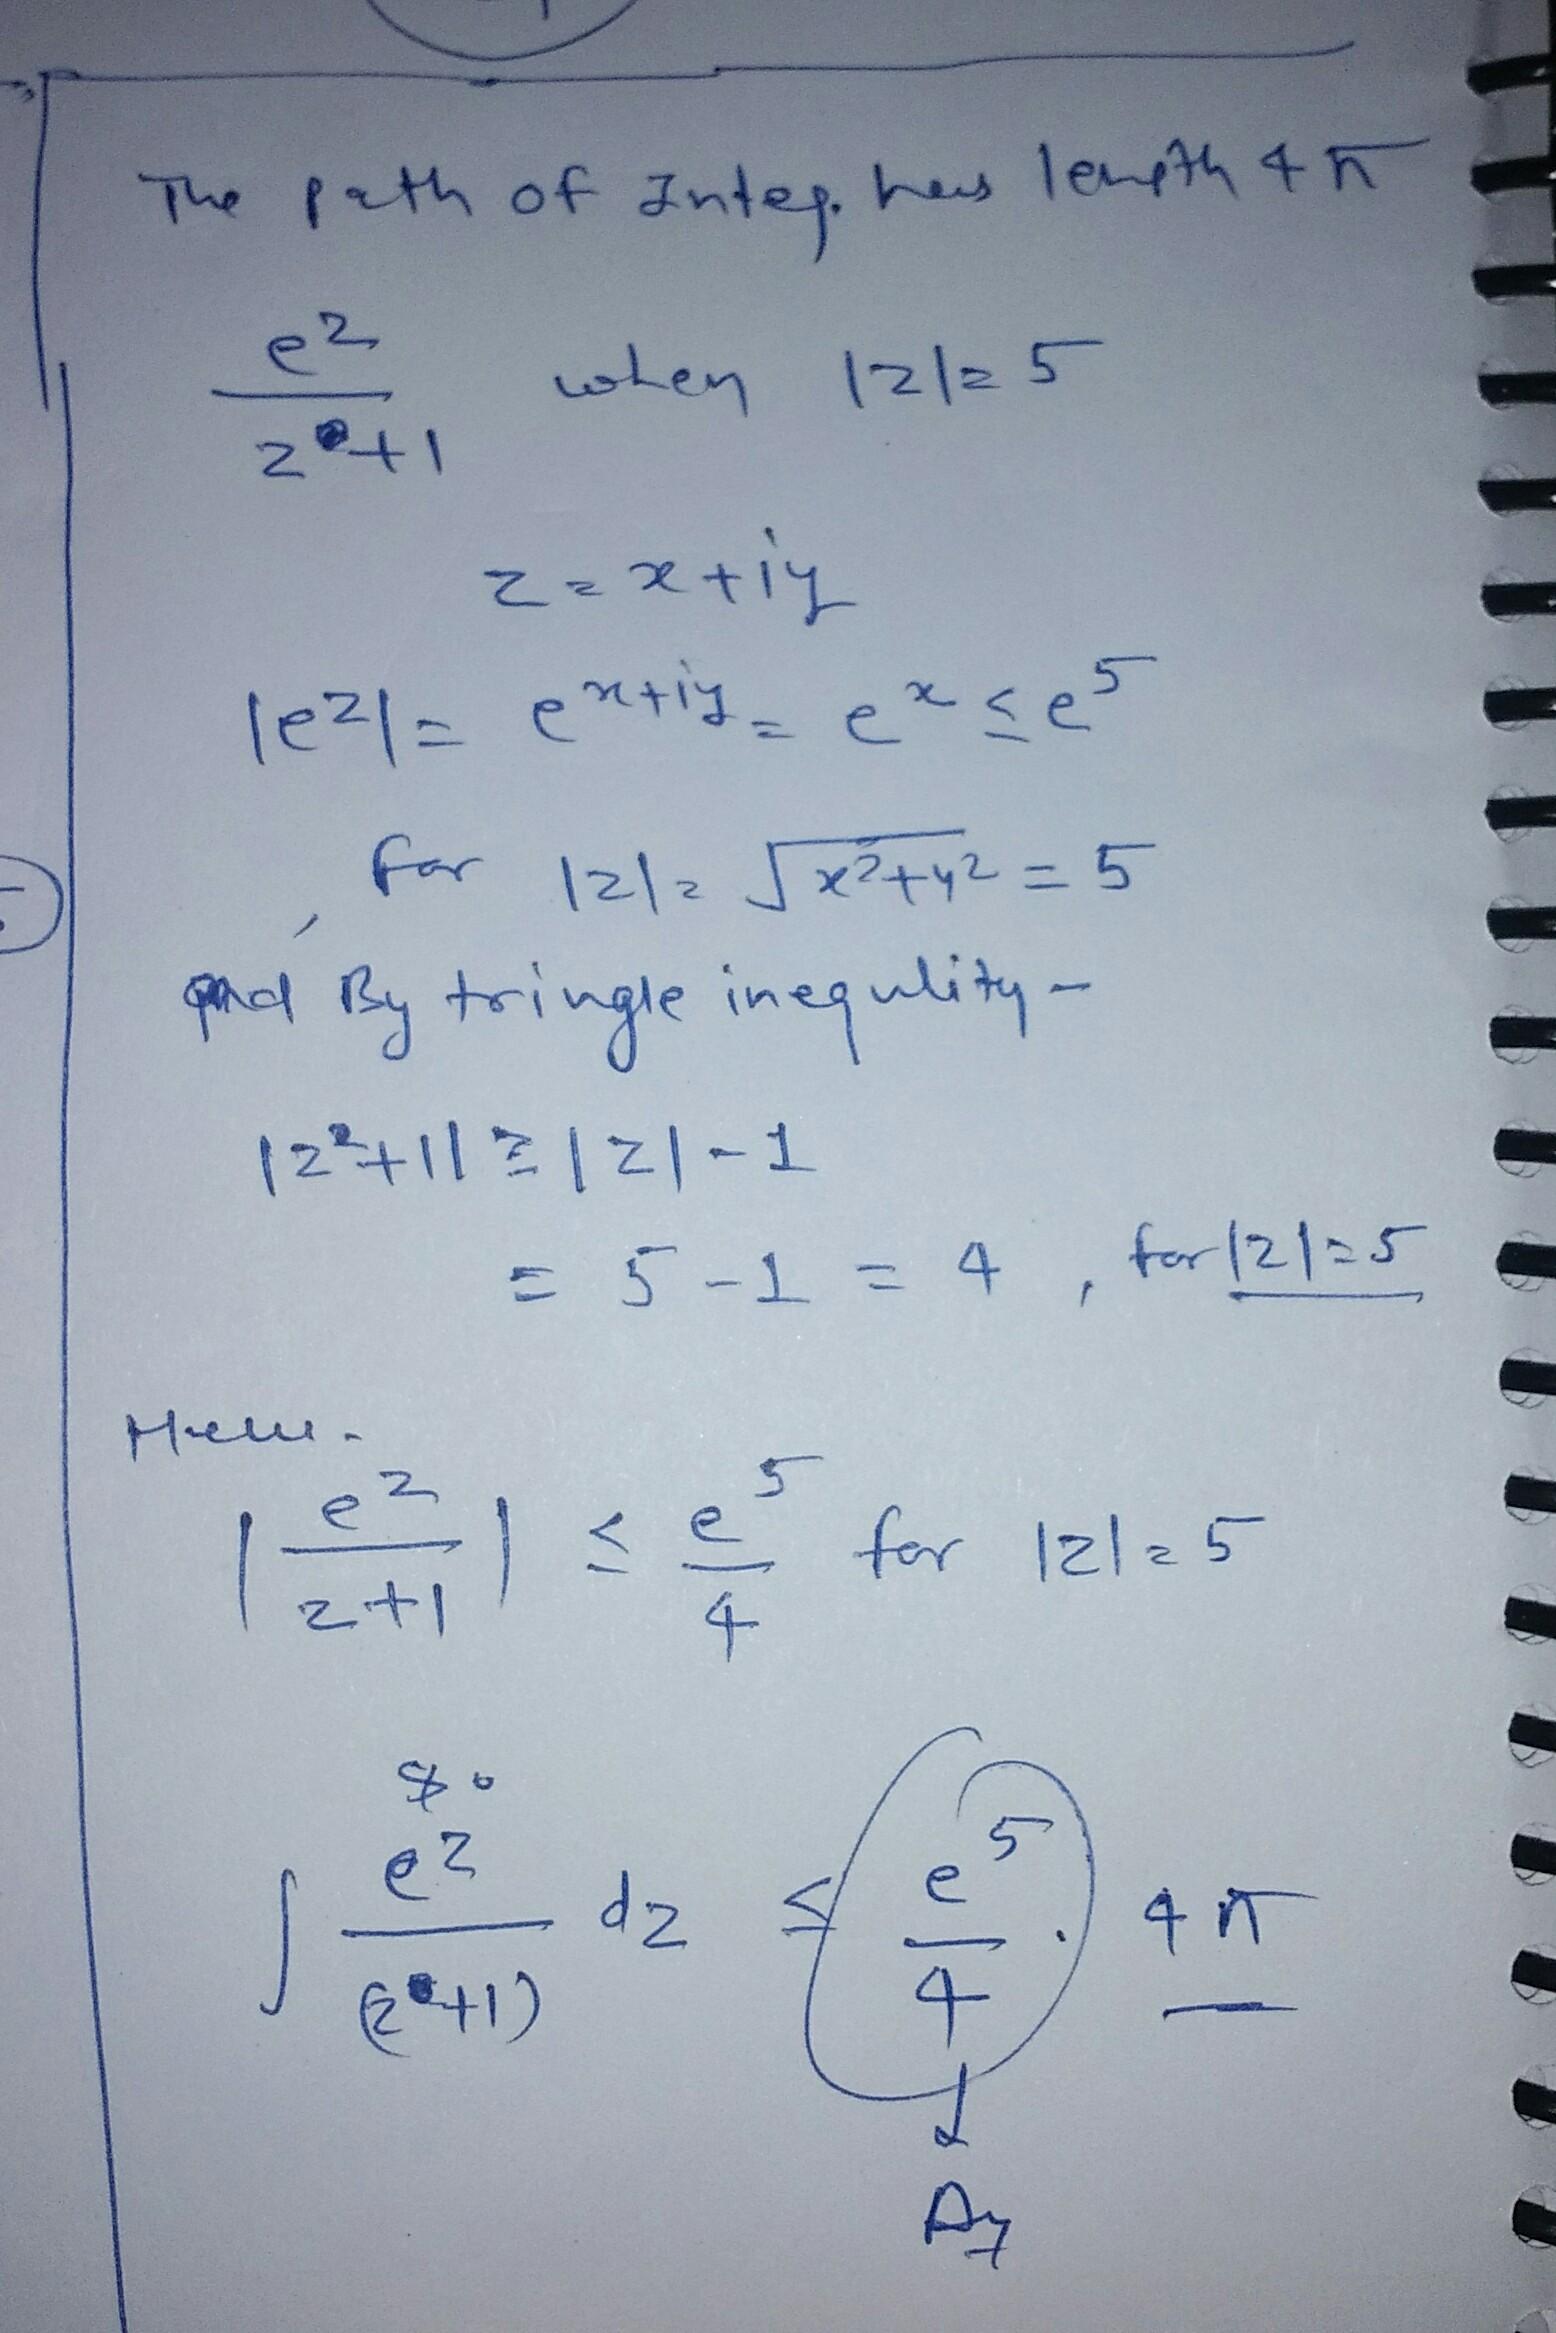 The path of Integ. has length 4π
e^z / z+1 when |z|=5
z = x+iy
|e^z| = e^x+iy = e^x ≤ e^5
, for |z| = √x²+y² = 5
and By tringle inequlity -
|z²+1| ≥ |z| - 1
= 5 - 1 = 4 , for |z|=5
|e^z / z+1| ≤ e^5 / 4 for |z|=5
So
∫ e^z / (z+1) dz ≤ e^5 / 4 . 4π